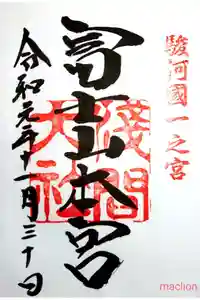 駿河國一之宮
富士山本宮
淺間大社
令和元年十一月三十日
maclion